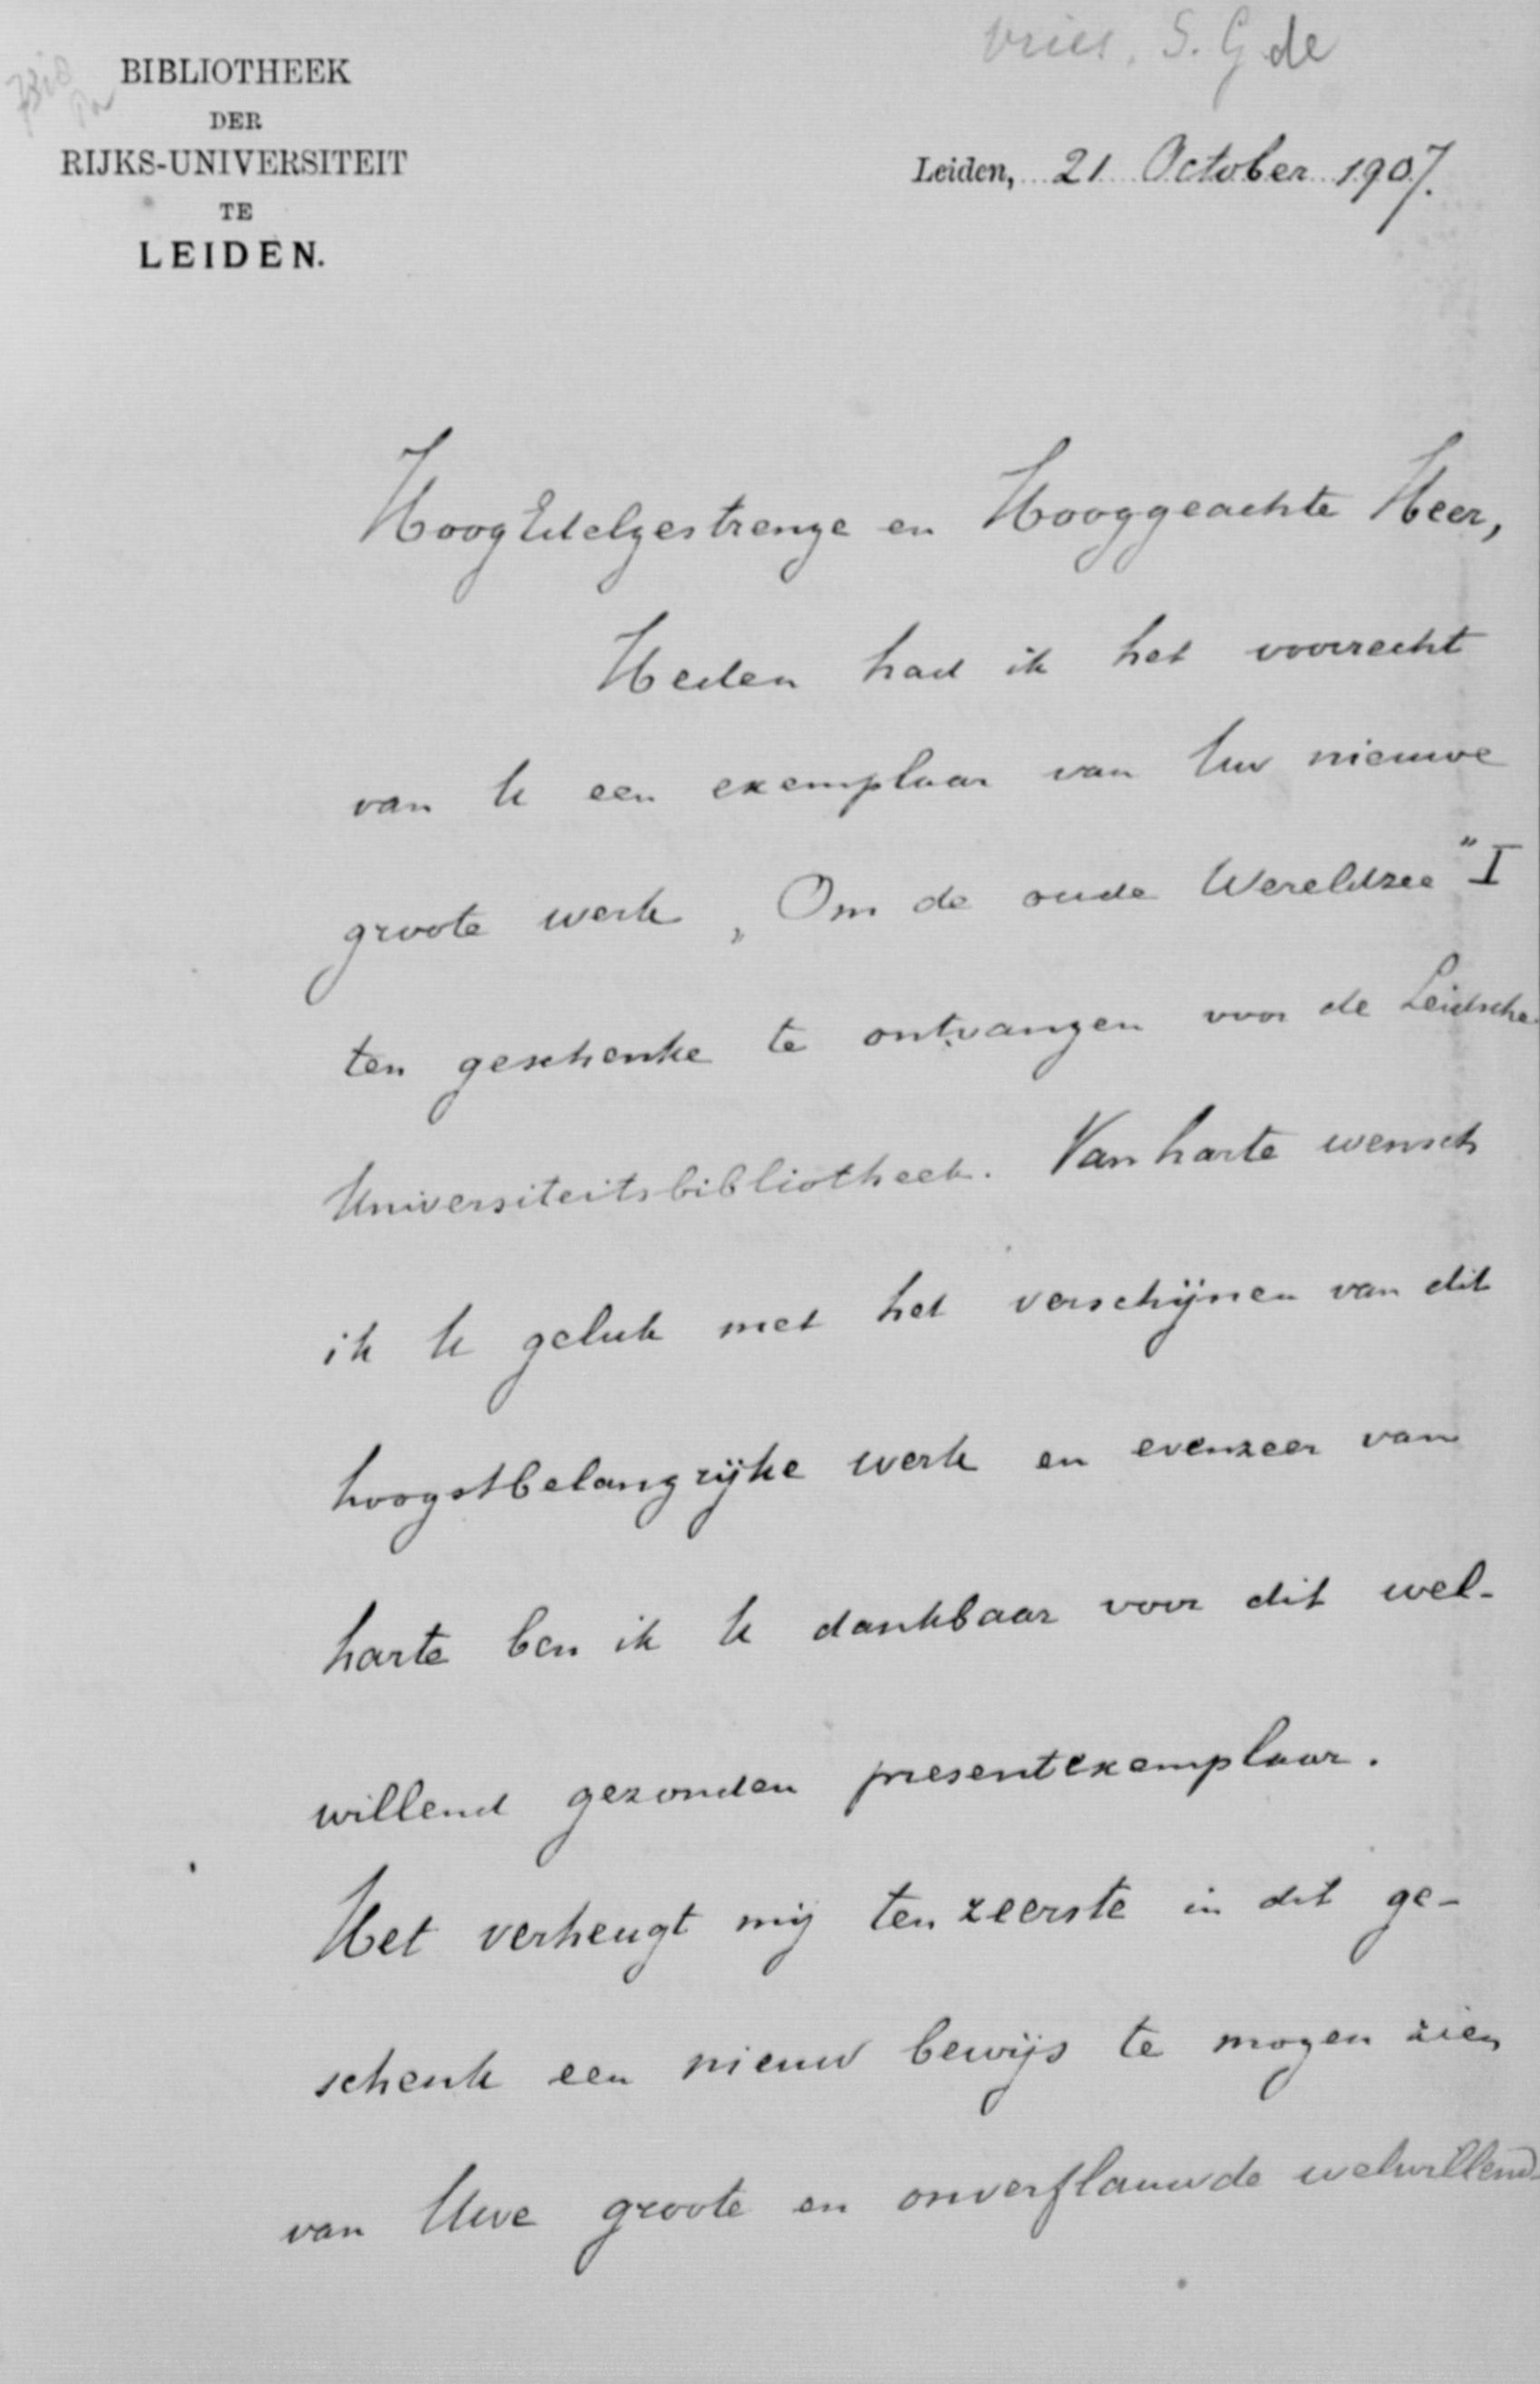 Vries, S. G. de
BIBLIOTHEEK
DER
RIJKS-UNIVERSITEIT
TE
LEIDEN.
Leiden, 21 October 1907.
HoogEdelgestrenge en Hooggeachte Heer,
Heden had ik het voorrecht
van U een exemplaar van Uw nieuwe
groote werk „Om de oude Wereldzee" I
ten geschenke te ontvangen voor de Leidsche
Universiteitsbibliotheek. Van harte wensch
ik U geluk met het verschijnen van dit
hoogstbelangrijke werk en evenzeer van
harte ben ik U dankbaar voor dit wel-
willend gezonden presentexemplaar.
Het verheugt mij ten zeerste in dit ge-
schenk een nieuw bewijs te mogen zien
van Uwe groote en onverflauwde welwillend-